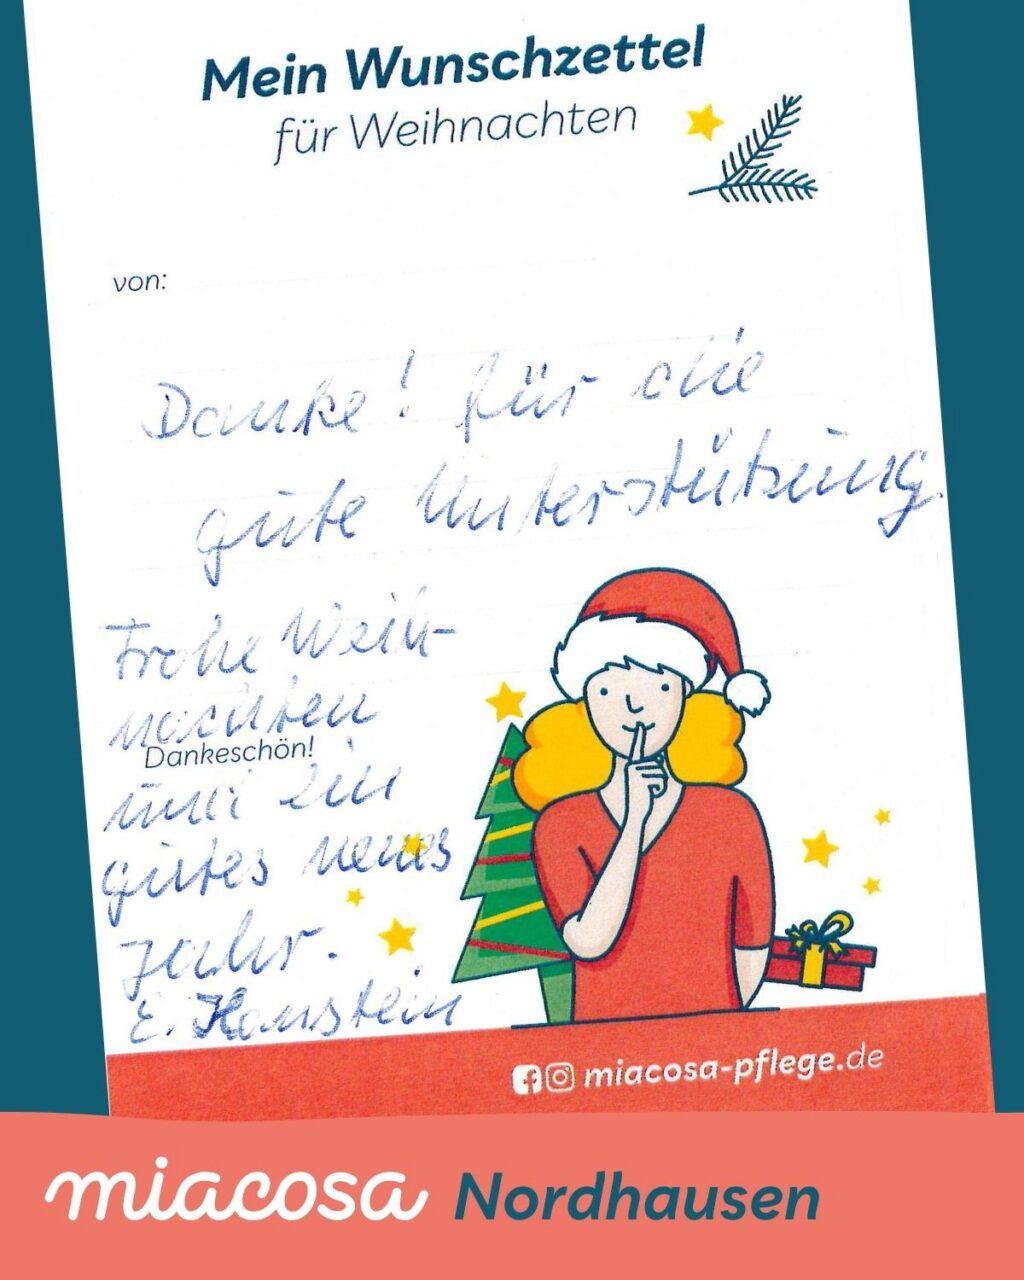 Mein Wunschzettel
für Weihnachten
von:
Danke! für die
gute Unterstützung.
Frohe Weih-
nachten
Dankeschön!
und ein
gutes neues
Jahr.
E. Hanstein
miacosa-pflege.de
miacosa Nordhausen